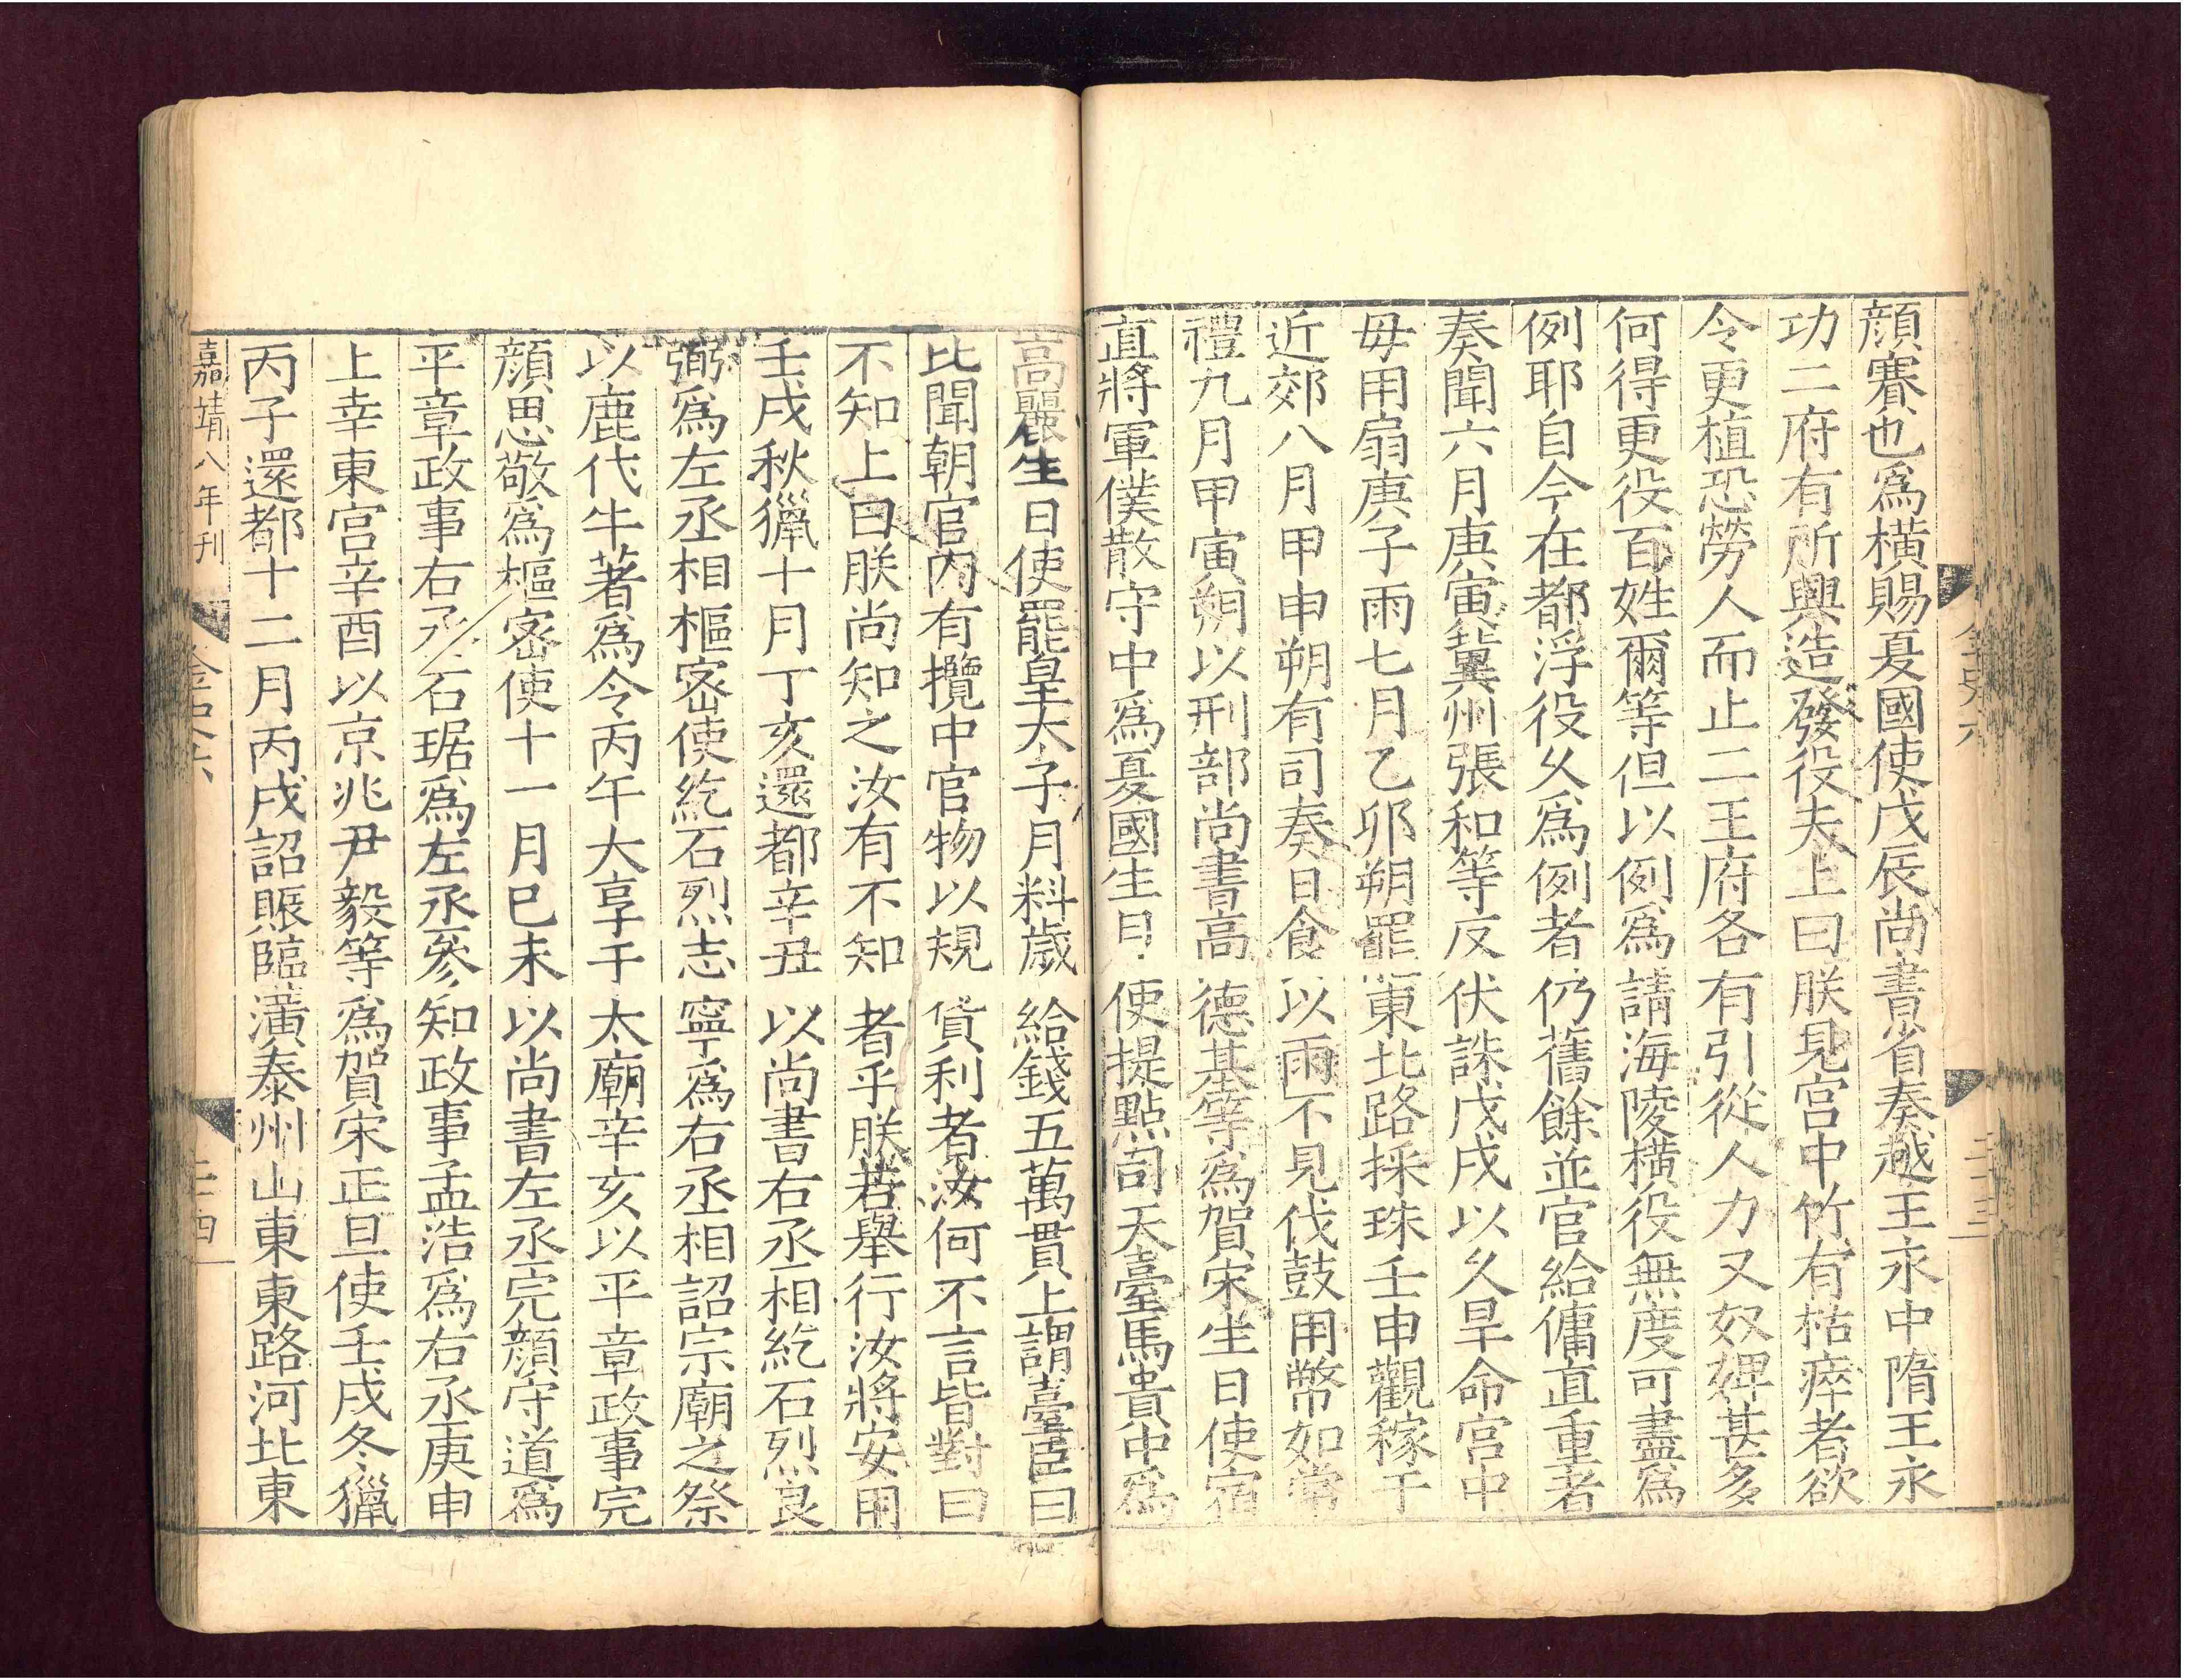 顔賽也爲橫賜夏國使戊辰尚書省奏越王永中隋王永
功二府有所興造發役夫上曰朕見宫中竹有枯瘁者欲
令更植恐勞人而止二王府各有引從人力又奴婢甚多
何得更役百姓爾等但以例爲請海陵橫役無度可盡爲
例耶自今在都浮役久爲例者仍舊餘並官給傭直重者
奏聞六月庚寅冀州張和等反伏誅戊戌以久旱命宮中
毋用扇庚子雨七月乙卯朔罷東北路採珠壬申觀稼于
近郊八月甲申朔有司奏日食以雨不見伐鼓用幣如常
禮九月甲寅朔以刑部尚書高德基等爲賀宋生日使宿
直將軍僕散守中爲夏國生日使提點司天臺馬貴中爲
高麗生日使罷皇太子月料歲給錢五萬貫上謂臺臣曰
比聞朝官内有攬中官物以規貨利者汝何不言皆對曰
不知上曰朕尚知之汝有不知者乎朕若舉行汝將安用
壬戌秋獵十月丁亥還都辛丑以尚書右丞相紇石烈良
弼爲左丞相樞密使紇石烈志寧爲右丞相詔宗廟之祭
以鹿代牛著爲令丙午大享于太廟辛亥以平章政事完
顔思敬爲樞密使十一月巳未以尚書左丞完顔守道爲
平章政事右丞石琚爲左丞參知政事孟浩爲右丞庚申
上幸東宫辛酉以京兆尹毅等爲賀宋正旦使壬戌冬獵
丙子還都十二月丙戌詔賑臨潢泰州山東東路河北東
嘉靖八年刊
金史六
二十四